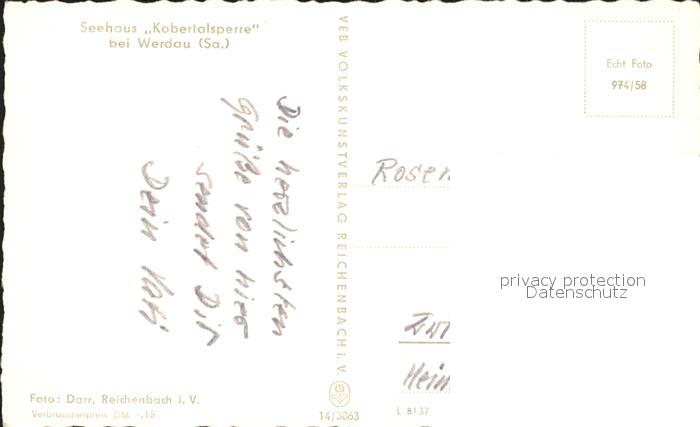 Seehaus „Kobertalsperre"
bei Werdau (Sa.)
Die herzlichsten
Grüße von hier
sendet Dir
Dein
VEB VOLKSKUNSTVERLAG REICHENBACH i. V.
Echt Foto
974/58
Rosen
privacy protection
Datenschutz
Foto: Darr, Reichenbach i. V.
Verbraucherpreis DM -.15
14/3063
L 8137